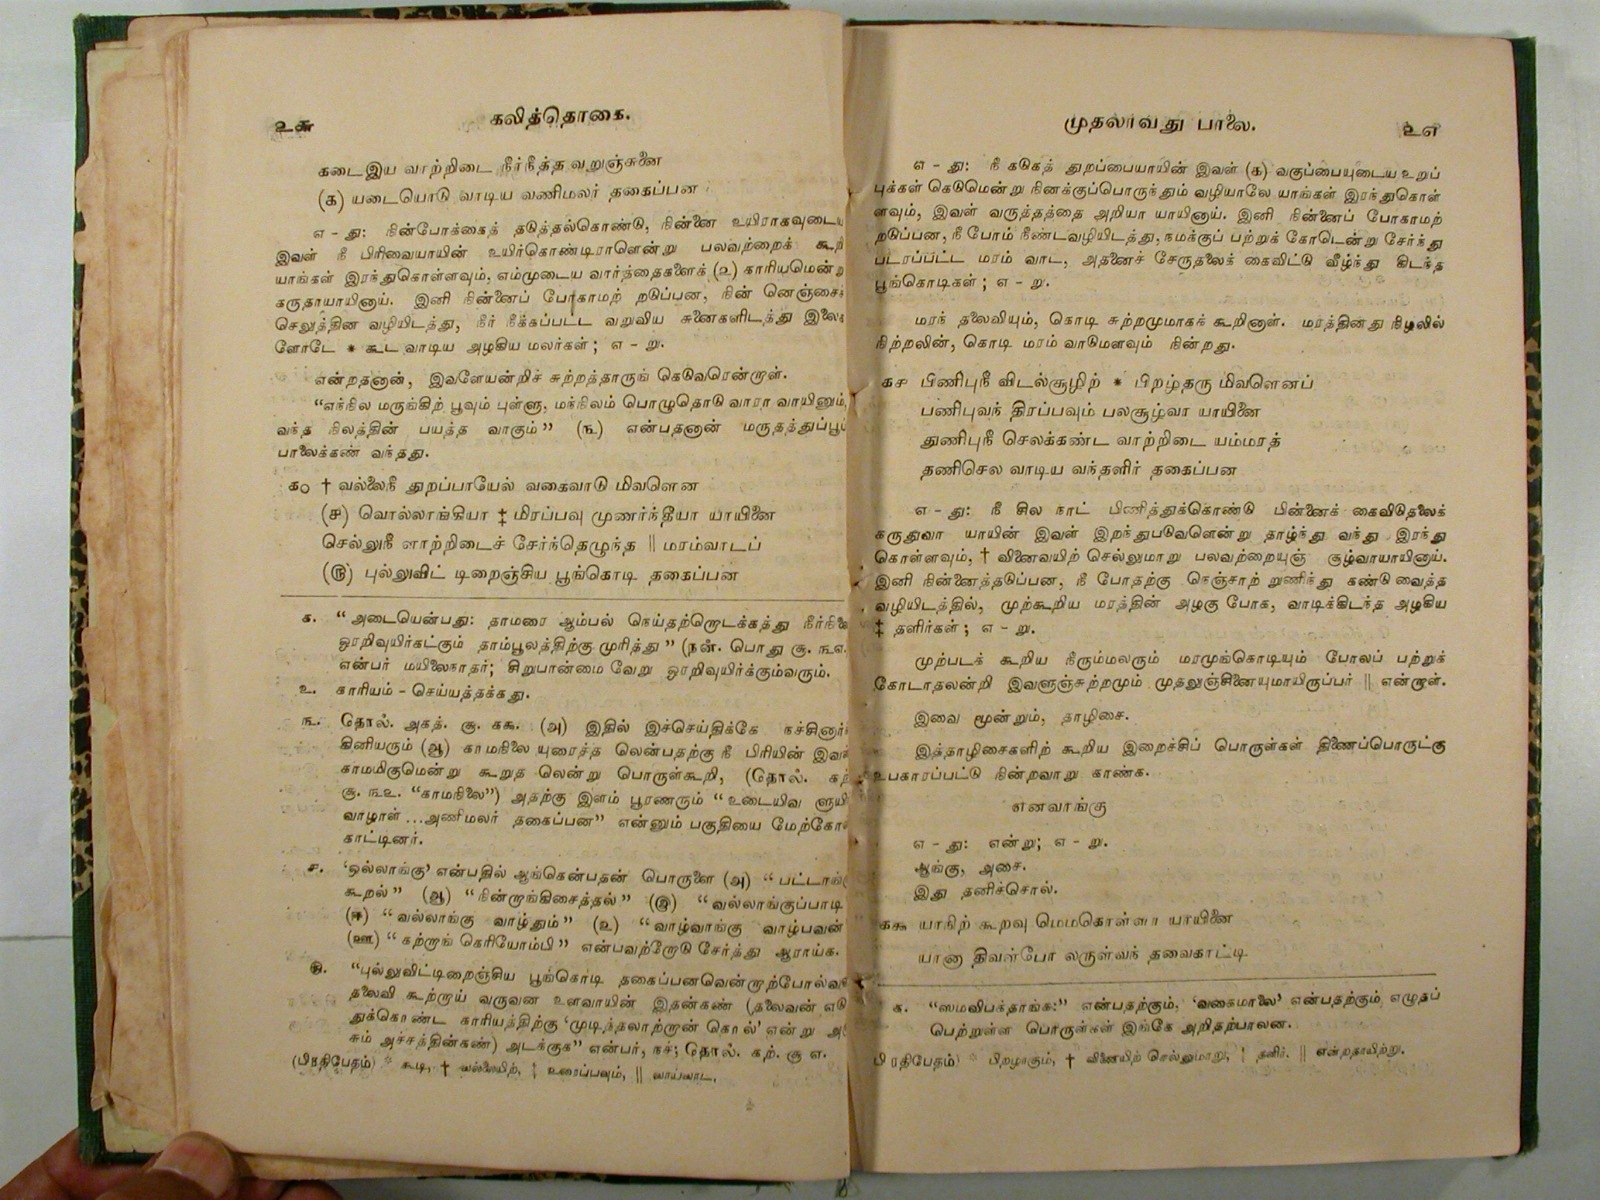 ௨௬
கலித்தொகை.
கடைஇய வாற்றிடை நீர்நீத்த வறுஞ்சுனை
(க) யடையொடு வாடிய வணிமலர் தகைப்பன
எ - து: நின்போக்கைத் தடுத்தல்கொண்டு, நின்னை உயிராகவுடைய
இவள் நீ பிரிவையாயின் உயிர்கொண்டிராளென்று பலவற்றைக் கூறி
யாங்கள் இரந்துகொள்ளவும், எம்முடைய வார்த்தைகளைக் (௨) காரியமென்று
கருதாயாயினாய். இனி நின்னைப் போகாமற் றடுப்பன, நின் னெஞ்சைச்
செலுத்தின வழியிடத்து, நீர் நீக்கப்பட்ட வறுவிய சுனைகளிடத்து இலை
ளோடே * கூட வாடிய அழகிய மலர்கள்; எ - று.
என்றதனான், இவளேயன்றிச் சுற்றத்தாருங் கெடுவரென்றாள்.
“எந்நில மருங்கிற் பூவும் புள்ளு, மந்நிலம் பொழுதொடு வாரா வாயினும்,
வந்த நிலத்தின் பயத்த வாகும்” (௩) என்பதனான் மருதத்துப்பூ
பாலைக்கண் வந்தது.
௧௦ † வல்லைநீ துறப்பாயேல் வகைவாடு மிவளென
(௪) வொல்லாங்கியா ‡ மிரப்பவு முணர்ந்தீயா யாயினை
செல்லுநீ ளாற்றிடைச் சேர்ந்தெழுந்த || மரம்வாடப்
(௫) புல்லுவிட் டிறைஞ்சிய பூங்கொடி தகைப்பன
க. “அடையென்பது: தாமரை ஆம்பல் நெய்தற்றொடக்கத்து நீர்நிலை
ஓரறிவுயிர்கட்கும் தாம்பூலத்திற்கு முரித்து” (நன். பொது சூ. ௩௭.
என்பர் மயிலைநாதர்; சிறுபான்மை வேறு ஓரறிவுயிர்க்கும்வரும்.
௨. காரியம் - செய்யத்தக்கது.
௩. தொல். அகத். சூ. ௧௯. (அ) இதில் இச்செய்திக்கே நச்சினார்க்
கினியரும் (ஆ) காமநிலை யுரைத்த லென்பதற்கு நீ பிரியின் இவள்
காமமிகுமென்று கூறுத லென்று பொருள்கூறி, (தொல். கற்
சூ. ௩௨. “காமநிலை”) அதற்கு இளம் பூரணரும் “உடையிவ ளுயி
வாழாள் ...அணிமலர் தகைப்பன” என்னும் பகுதியை மேற்கோள்
காட்டினர்.
௪. ‘ஒல்லாங்கு’ என்பதில் ஆங்கென்பதன் பொருளை (அ) “பட்டாங்கு
கூறல்” (ஆ) “நின்றாங்கிசைத்தல்” (இ) “வல்லாங்குப்பாடி
(ஈ) “வல்லாங்கு வாழ்தும்” (உ) “வாழ்வாங்கு வாழ்பவன்
(ஊ) “கற்றாங் கெரியோம்பி” என்பவற்றோடு சேர்த்து ஆராய்க.
௫. “புல்லுவிட்டிறைஞ்சிய பூங்கொடி தகைப்பனவென்றாற்போல்வன
தலைவி கூற்றாய் வருவன உளவாயின் இதன்கண் (தலைவன் எடு
துக்கொண்ட காரியத்திற்கு ‘முடிந்தலாற்றான் கொல்’ என்று அ
சும் அச்சத்தின்கண்) அடக்குக” என்பர், நச்; தொல். கற். சூ ௭.
(பிரதிபேதம்) * கூடி, † வல்லையிற், ‡ உரைப்பவும், || வாய்வாட,
முதலாவது பாலை.
௨௭
எ - து: நீ கடுகத் துறப்பையாயின் இவள் (க) வகுப்பையுடைய உறுப்
புக்கள் கெடுமென்று நினக்குப்பொருந்தும் வழியாலே யாங்கள் இரந்துகொள்
ளவும், இவள் வருத்தத்தை அறியா யாயினாய். இனி நின்னைப் போகாமற்
றடுப்பன, நீ போம் நீண்டவழியிடத்து, நமக்குப் பற்றுக் கோடென்று சேர்ந்து
படரப்பட்ட மரம் வாட, அதனைச் சேருதலைக் கைவிட்டு வீழ்ந்து கிடந்த
பூங்கொடிகள்; எ - று.
மரந் தலைவியும், கொடி சுற்றமுமாகக் கூறினாள். மரத்தினது நிழலில்
நிற்றலின், கொடி மரம் வாடுமளவும் நின்றது.
௧௪ பிணிபுநீ விடல்சூழிற் * பிறழ்தரு மிவளெனப்
பணிபுவந் திரப்பவும் பலசூழ்வா யாயினை
துணிபுநீ செலக்கண்ட வாற்றிடை யம்மரத்
தணிசெல வாடிய வந்தளிர் தகைப்பன
எ - து: நீ சில நாட் பிணித்துக்கொண்டு பின்னைக் கைவிடுதலைக்
கருதுவா யாயின் இவள் இறந்துபடுவளென்று தாழ்ந்து வந்து இரந்து
கொள்ளவும், † வினைவயிற் செல்லுமாறு பலவற்றையுஞ் சூழ்வாயாயினாய்.
இனி நின்னைத்தடுப்பன, நீ போதற்கு நெஞ்சாற் றுணிந்து கண்டு வைத்த
வழியிடத்தில், முற்கூறிய மரத்தின் அழகு போக, வாடிக்கிடந்த அழகிய
‡ தளிர்கள்; எ - று.
முற்படக் கூறிய நீரும்மலரும் மரமுங்கொடியும் போலப் பற்றுக்
கோடாதலன்றி இவளுஞ்சுற்றமும் முதலுஞ்சினையுமாயிருப்பர் || என்றாள்.
இவை மூன்றும், தாழிசை.
இத்தாழிசைகளிற் கூறிய இறைச்சிப் பொருள்கள் திணைப்பொருட்கு
உபகாரப்பட்டு நின்றவாறு காண்க.
எனவாங்கு
எ - து: என்று; எ - று.
ஆங்கு, அசை.
இது தனிச்சொல்.
௧௯ யாநிற் கூறவு மெமகொள்ளா யாயினை
யானா திவள்போ லருள்வந் தவைகாட்டி
க. “ஸமவிபக்தாங்க:” என்பதற்கும், ‘வகைமாலை’ என்பதற்கும் எழுதப்
பெற்றுள்ள பொருள்கள் இங்கே அறிதற்பாலன.
பிரதிபேதம்) * பிறழாகும், † வினையிற் செல்லுமாறு, ‡ தனிர். || என்றதாயிற்று.